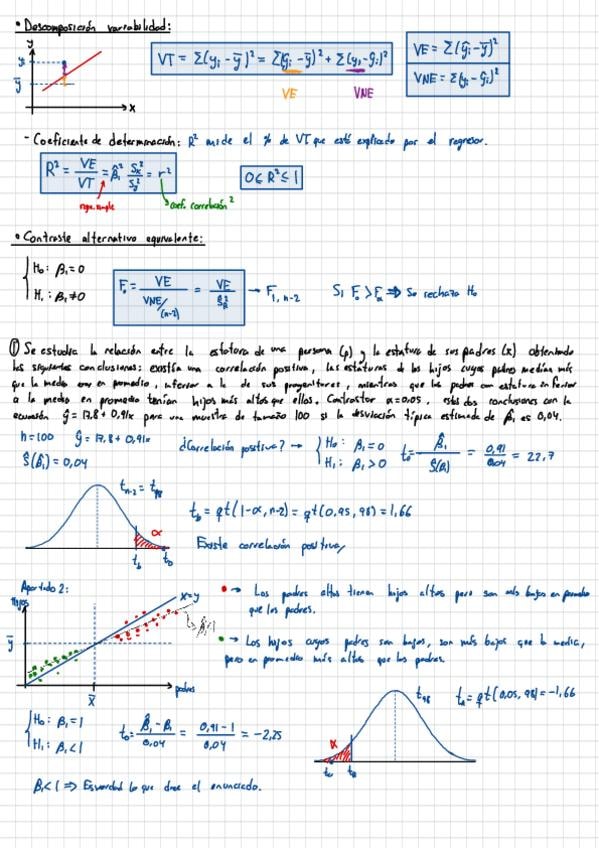 • Descomposición variabilidad:
y
yi
ȳ
x
VT = Σ(yi - ȳ)² = Σ(ŷi - ȳ)² + Σ(yi - ŷi)²
VE VNE
VE = Σ(ŷi - ȳ)²
VNE = Σ(yi - ŷi)²
- Coeficiente de determinación: R² mide el % de VT que está explicado por el regresor.
R² = VE/VT = β̂1² Sx²/Sy² = r²
0 ≤ R² ≤ 1
regr. simple
coef. correlación²
• Contraste alternativo equivalente:
H0: β1 = 0
H1: β1 ≠ 0
F0 = VE / (VNE/(n-2)) = VE / ŜR² → F1, n-2
Si F0 > Fα ⇒ Se rechaza H0
① Se estudia la relación entre la estatura de una persona (y) y la estatura de sus padres (x) obteniendo
las siguientes conclusiones: existía una correlación positiva, las estaturas de los hijos cuyos padres medían más
que la media eran en promedio, inferior a la de sus progenitores, mientras que los padres con estatura inferior
a la media en promedio tenían hijos más altos que ellos. Contrastar α=0.05, estas dos conclusiones con la
ecuación ŷ = 17,8 + 0,91x para una muestra de tamaño 100 si la desviación típica estimada de β̂1 es 0,04.
n=100 ŷ = 17,8 + 0,91x
Ŝ(β̂1) = 0,04
¿Correlación positiva? →
H0: β1 = 0
H1: β1 > 0
t0 = β̂1 / Ŝ(β1) = 0,91 / 0,04 = 22,7
tn-2 = t98
α
tα t0
tα = qt(1-α, n-2) = qt(0,95, 98) = 1,66
Existe correlación positiva
Apartado 2:
Hijos
x=y
β<1
ȳ
x̄
padres
• → Los padres altos tienen hijos altos pero son más bajos en promedio
que los padres.
• → Los hijos cuyos padres son bajos, son más bajos que la media,
pero en promedio más altos que los padres.
H0: β1 = 1
H1: β1 < 1
t0 = (β̂1 - β1) / 0,04 = (0,91 - 1) / 0,04 = -2,25
t98
α
tα = qt(0,05, 98) = -1,66
β1 < 1 ⇒ Es verdad lo que dice el enunciado.